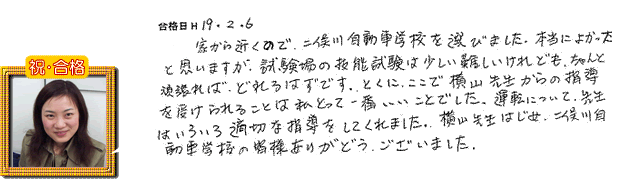 合格日H19.2.6
家から近くので、二俣川自動車学校を選びました。本当によかった
と思いますが、試験場の技能試験は少し難しいけれども、ちゃんと
頑張れば、どれるはずです。とくに、ここで横山先生からの指導
を受けられることは私とって一番いいことでした。運転について、先生
はいろいろ適切な指導をしてくれました。横山先生はじめ、二俣川自
動車学校の皆様ありがどう、ございました。
祝・合格